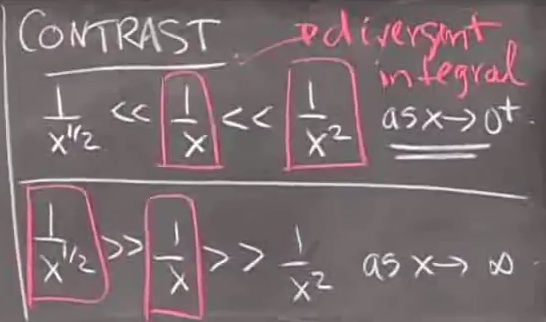 CONTRAST
divergent
integral
1/x^{1/2} << 1/x << 1/x² as x→0⁺
1/x^{1/2} >> 1/x >> 1/x² as x→∞